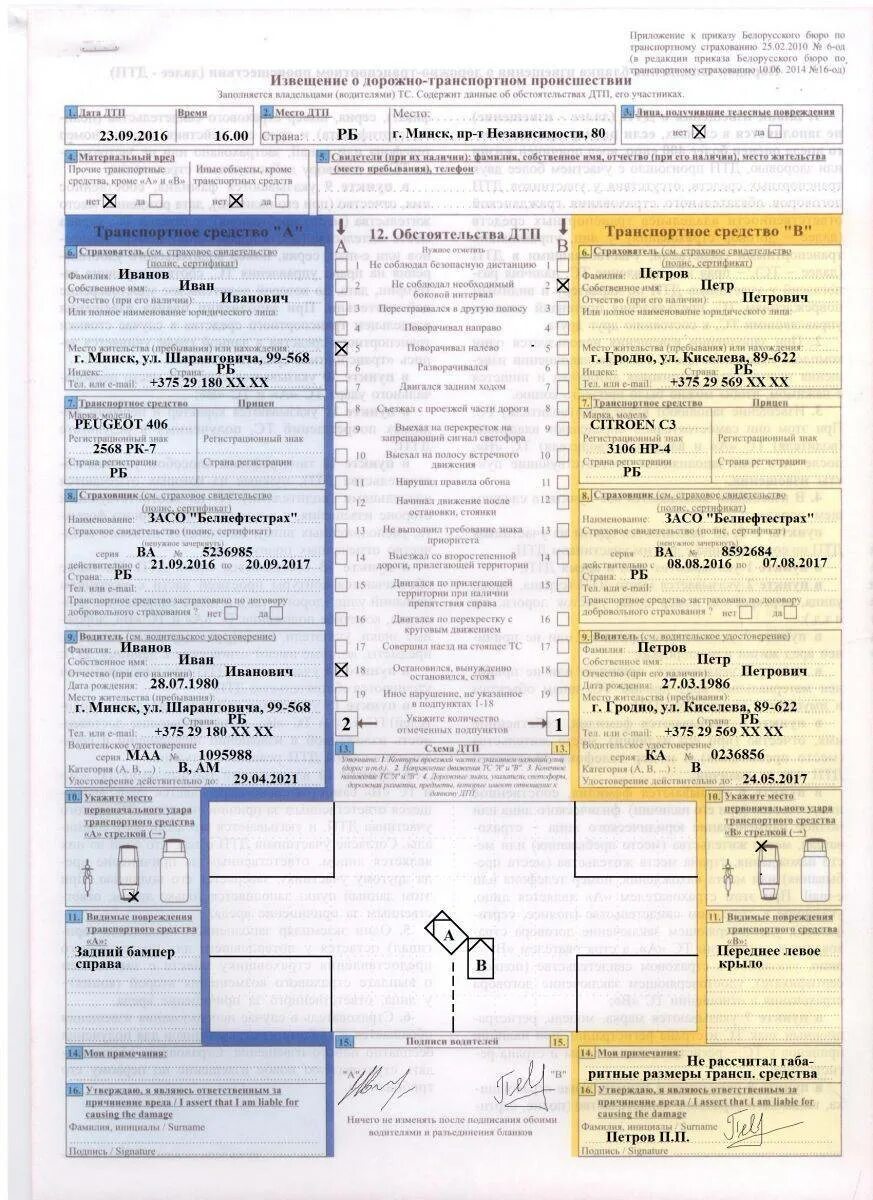 Приложение к приказу Белорусского бюро по
транспортному страхованию 25.02.2010 № 6-од
(в редакции приказа Белорусского бюро по
транспортному страхованию 10.06. 2014 №16-од)
Извещение о дорожно-транспортном происшествии
Заполняется владельцами (водителями) ТС. Содержит данные об обстоятельствах ДТП, его участниках.
1. Дата ДТП Время
23.09.2016 16.00
2. Место ДТП Место:
Страна: РБ г. Минск, пр-т Независимости, 80
3. Лица, получившие телесные повреждения
нет да
4. Материальный вред
Прочие транспортные средства, кроме «А» и «В»
нет да
Иные объекты, кроме транспортных средств
нет да
5. Свидетели (при их наличии): фамилия, собственное имя, отчество (при его наличии), место жительства
(место пребывания), телефон
Транспортное средство "А"
6. Страхователь (см. страховое свидетельство
(полис, сертификат)
Фамилия: Иванов
Собственное имя: Иван
Отчество (при его наличии): Иванович
Или полное наименование юридического лица:
Место жительства (пребывания) или нахождения:
г. Минск, ул. Шаранговича, 99-568
Индекс: Страна: РБ
Тел. или e-mail: +375 29 180 XX XX
7. Транспортное средство Прицеп
Марка, модель
PEUGEOT 406
Регистрационный знак Регистрационный знак
2568 РК-7
Страна регистрации Страна регистрации
РБ
8. Страховщик (см. страховое свидетельство
(полис, сертификат)
Наименование: ЗАСО "Белнефтестрах"
Страховое свидетельство (полис, сертификат)
(ненужное зачеркнуть)
серия ВА № 5236985
действительно с 21.09.2016 по 20.09.2017
Страна: РБ
Тел. или e-mail:
Транспортное средство застраховано по договору
добровольного страхования ? нет да
9. Водитель (см. водительское удостоверение)
Фамилия: Иванов
Собственное имя: Иван
Отчество (при его наличии): Иванович
Дата рождения: 28.07.1980
Место жительства (пребывания):
г. Минск, ул. Шаранговича, 99-568
Страна: РБ
Тел. или e-mail: +375 29 180 XX XX
Водительское удостоверение
серия МАА № 1095988
Категория (А, В, ...) : В, АМ
Удостоверение действительно до: 29.04.2021
10. Укажите место
первоначального удара
транспортного средства
«А» стрелкой (→)
11. Видимые повреждения
транспортного средства
«А»:
Задний бампер
справа
12. Обстоятельства ДТП
А В
Нужное отметить
1 Не соблюдал безопасную дистанцию 1
2 Не соблюдал необходимый боковой интервал 2
3 Перестраивался в другую полосу 3
4 Поворачивал направо 4
5 Поворачивал налево 5
6 Разворачивался 6
7 Двигался задним ходом 7
8 Съезжал с проезжей части дороги 8
9 Выехал на перекресток на запрещающий сигнал светофора 9
10 Выехал на полосу встречного движения 10
11 Нарушил правила обгона 11
12 Начинал движение после остановки, стоянки 12
13 Не выполнил требование знака приоритета 13
14 Выезжал со второстепенной дороги, прилегающей территории 14
15 Двигался по прилегающей территории при наличии препятствия справа 15
16 Двигался по перекрестку с круговым движением 16
17 Совершил наезд на стоящее ТС 17
18 Остановился, вынужденно остановился, стоял 18
19 Иное нарушение, не указанное в подпунктах 1-18 19
2 Укажите количество отмеченных подпунктов 1
13. Схема ДТП 13.
Уточните: 1. Контуры проезжей части с указанием названий улиц
(дорог и т.д.). 2. Направление движения ТС "А" и "В". 3. Конечное
положение ТС "А" и "В". 4. Дорожные знаки, указатели, светофоры,
дорожная разметка, предметы, которые имеют отношение к
данному ДТП.
А
В
Транспортное средство "В"
6. Страхователь (см. страховое свидетельство
(полис, сертификат)
Фамилия: Петров
Собственное имя: Петр
Отчество (при его наличии): Петрович
Или полное наименование юридического лица:
Место жительства (пребывания) или нахождения:
г. Гродно, ул. Киселева, 89-622
Индекс: Страна: РБ
Тел. или e-mail: +375 29 569 XX XX
7. Транспортное средство Прицеп
Марка, модель
CITROEN C3
Регистрационный знак Регистрационный знак
3106 НР-4
Страна регистрации Страна регистрации
РБ
8. Страховщик (см. страховое свидетельство
(полис, сертификат)
Наименование: ЗАСО "Белнефтестрах"
Страховое свидетельство (полис, сертификат)
(ненужное зачеркнуть)
серия ВА № 8592684
действительно с 08.08.2016 по 07.08.2017
Страна: РБ
Тел. или e-mail:
Транспортное средство застраховано по договору
добровольного страхования ? нет да
9. Водитель (см. водительское удостоверение)
Фамилия: Петров
Собственное имя: Петр
Отчество (при его наличии): Петрович
Дата рождения: 27.03.1986
Место жительства (пребывания):
г. Гродно, ул. Киселева, 89-622
Страна: РБ
Тел. или e-mail: +375 29 569 XX XX
Водительское удостоверение
серия КА № 0236856
Категория (А, В, ...) : В
Удостоверение действительно до: 24.05.2017
10. Укажите место
первоначального удара
транспортного средства
«В» стрелкой (→)
11. Видимые повреждения
транспортного средства
«В»:
Переднее левое
крыло
14. Мои примечания:
16. Утверждаю, я являюсь ответственным за
причинение вреда / I assert that I am liable for
causing the damage
Фамилия, инициалы / Surname
Подпись / Signature
15. Подписи водителей 15.
"А" "В"
Ничего не изменять после подписания обоими
водителями и разъединения бланков
14. Мои примечания: Не рассчитал габа-
ритные размеры трансп. средства
16. Утверждаю, я являюсь ответственным за
причинение вреда / I assert that I am liable for
causing the damage
Фамилия, инициалы / Surname
Петров П.П.
Подпись / Signature